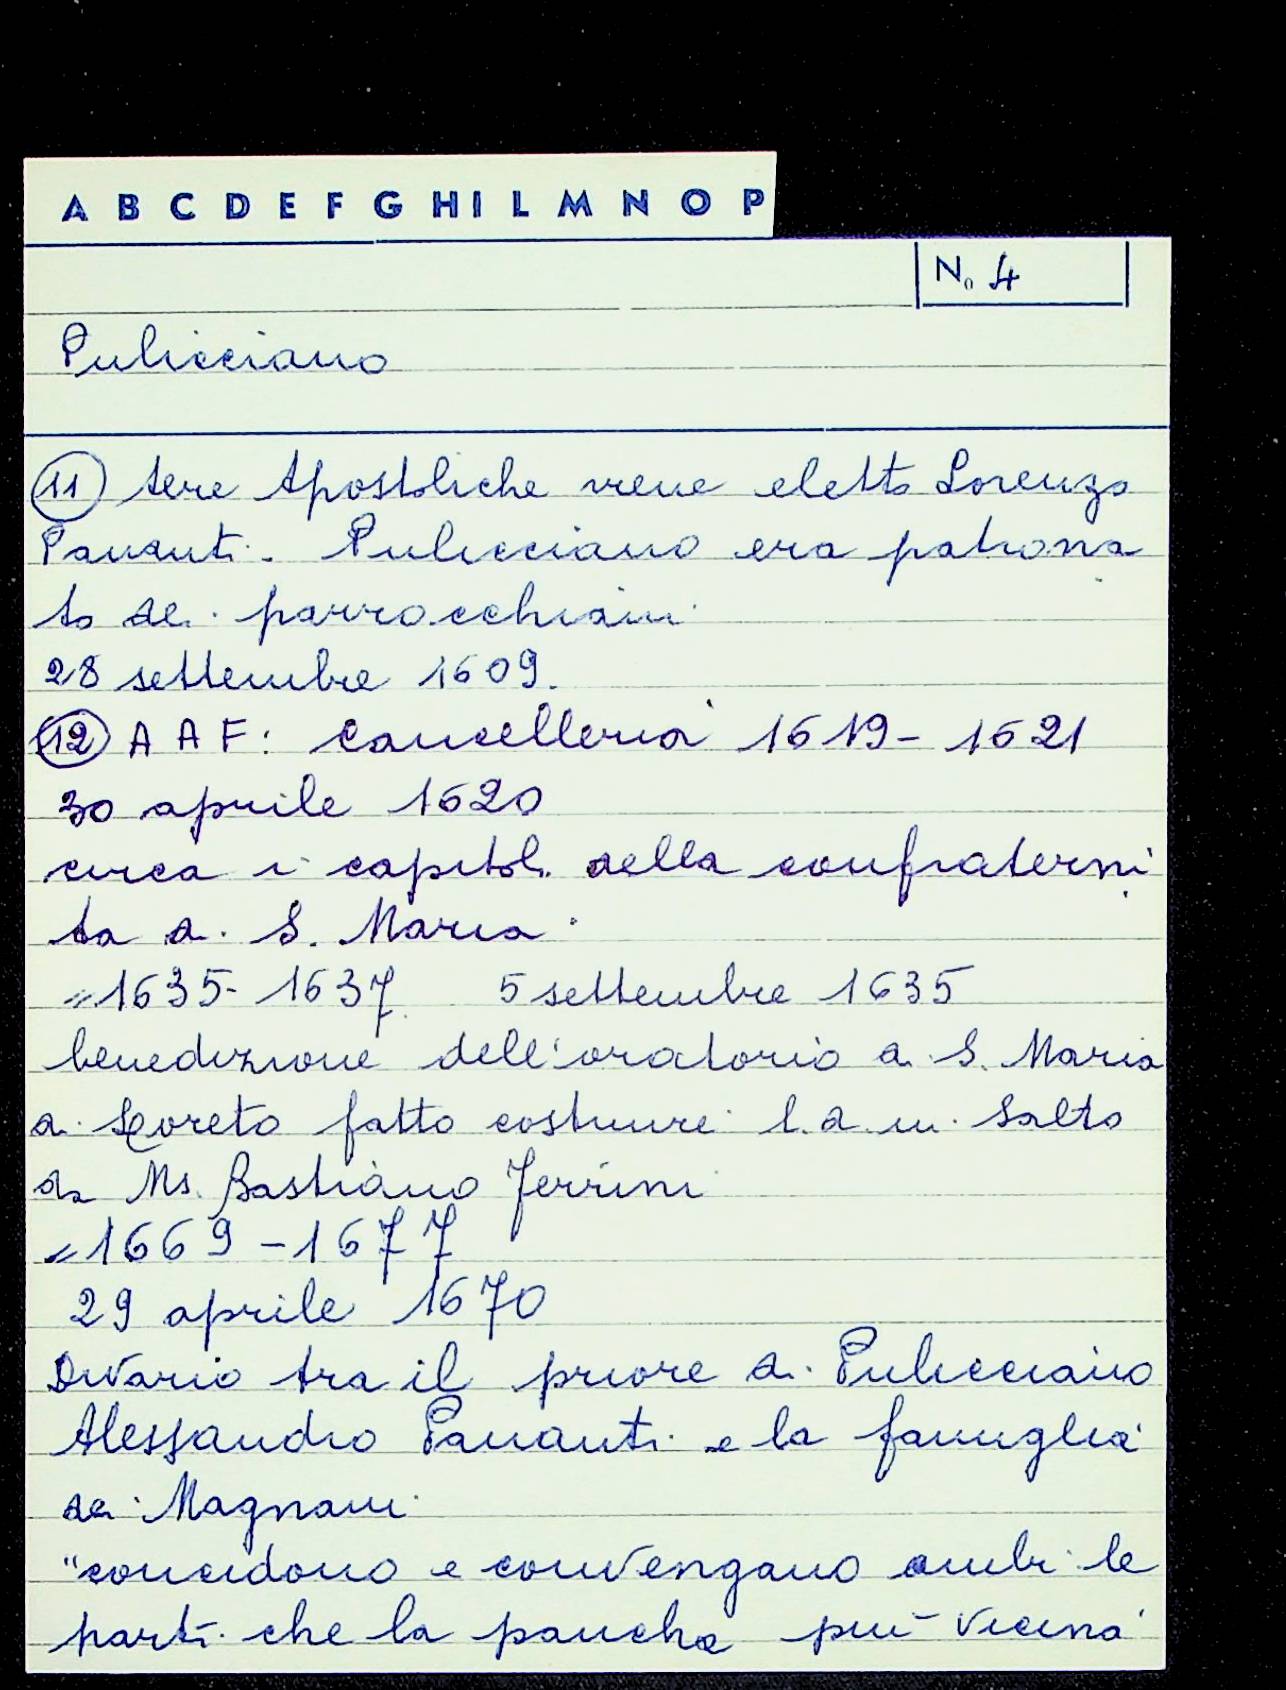 A B C D E F G H I L M N O P
N. 4
Pulicciano
11 tere Apostoliche viene eletto Lorenzo
Pananti. Pulicciano era patrona
to dei parrocchiani
28 settembre 1609.
12 A A F: Cancelleria 1619-1621
30 aprile 1620
circa i capitoli della confraterni
ta di S. Maria
" 1635-1637 5 settembre 1635
benedizione dell'oratorio di S. Maria
di Loreto fatto costruire l.d. in Salto
da Ms. Bastiano Ferrini
" 1669-1677
29 aprile 1670
Divario tra il priore di Pulicciano
Alessandro Pananti e la famiglia
dei Magnani
"concidono e convengano ambi le
parti che la pancha più vicina